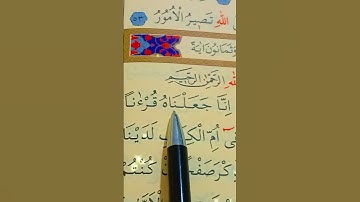 اللّٰهِ تَصِيرُ الْاُمُورُ ٥٣
وَثَمَانُونَ اٰيَةً
اللّٰهِ الرَّحْمٰنِ الرَّحِيمِ
اِنَّا جَعَلْنَاهُ قُرْءٰنًا
اُمِّ الْكِتَابِ لَدَيْنَا
صَفْحًا اَنْ كُنْتُمْ